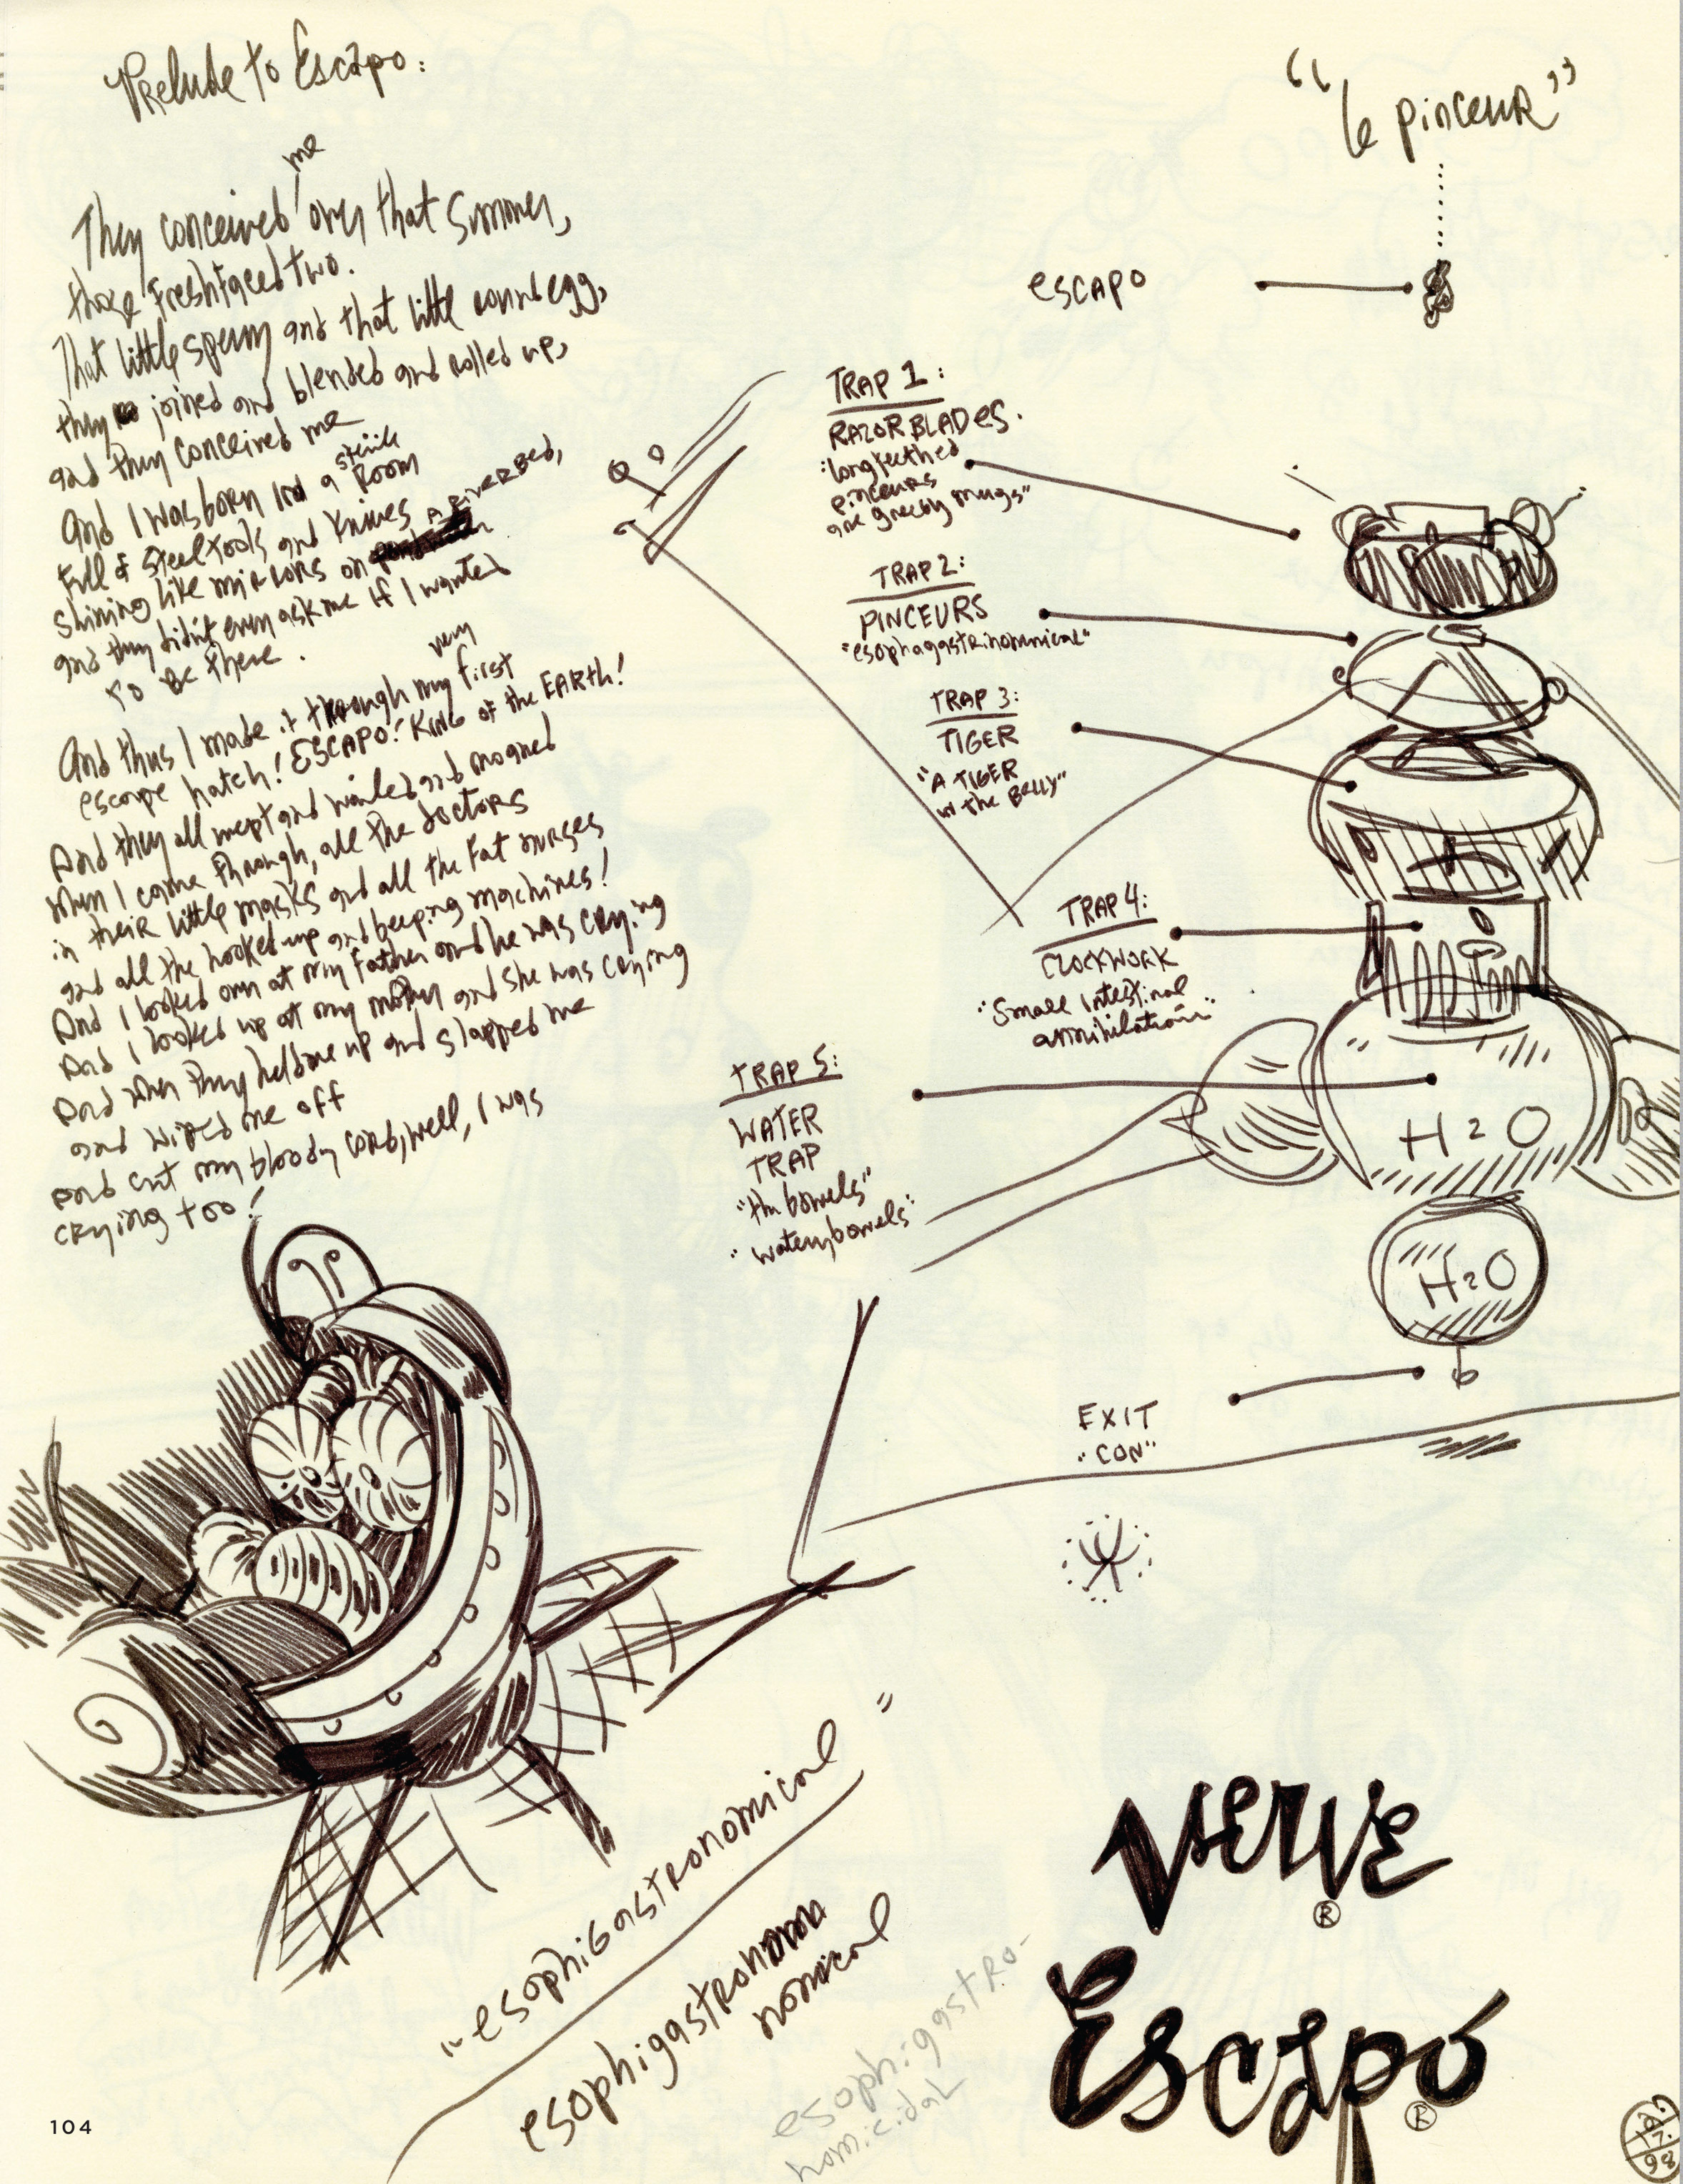 Prelude to Escapo:
me
They conceived over that summer,
those freshfaced two.
That little sperm and that little round egg,
they joined and blended and rolled up,
and they conceived me
sterile
And I was born in a Room
full of steel tools and knives A RiveRBed,
shining like mirrors on
and they didn't even ask me if I wanted
to Be there.
very
And thus I made it through my first
escape hatch! ESCAPO! King of the EARth!
And they all wept and wailed and moaned
when I came through, all the doctors
in their little masks and all the fat nurses
and all the hooked-up and beeping machines!
And I looked over at my father and he was crying
And I looked up at my mother and she was crying
And when they held me up and slapped me
and wiped me off
and cut my bloody cord, well, I was
crying too!
"le pinceur"
escapo
TRAP 1:
RAZOR BLADES.
"long teethed
pinceurs
are greedy mugs"
TRAP 2:
PINCEURS
"esophagastrinomnical"
TRAP 3:
TIGER
"A TIGER
in the Belly"
TRAP 4:
CLOCKWORK
"small intestinal
annihilation"
TRAP 5:
WATER
TRAP
"the bowels"
"watery bowels"
H2O
H2O
EXIT
"CON"
"esophigastronomical"
esophigastronomo
nomical
esophigastro-
homicidal
Verve
®
Escapo
®
97.
98
104